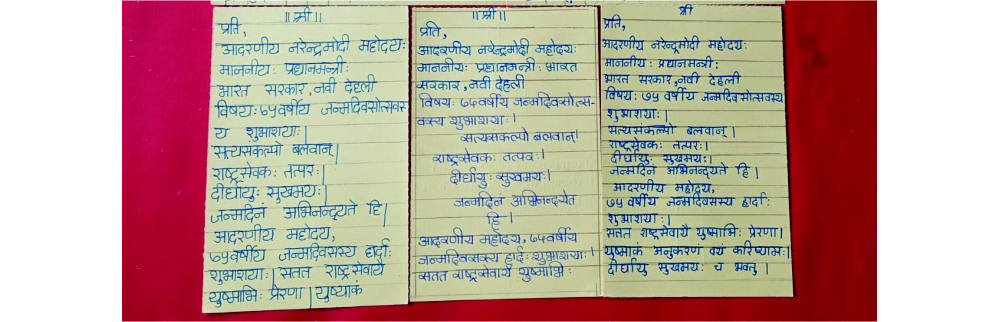 ॥श्री॥
प्रति,
आदरणीय नरेन्द्रमोदी महोदयः
माननीयः प्रधानमन्त्रीः
भारत सरकार,नवी देहली
विषयः७५वर्षीय जन्मदिवसोत्सवस्
य शुभाशयाः|
सत्यसंकल्पो बलवान्|
राष्ट्रसेवकः तत्परः|
दीर्घायुः सुखमयः|
जन्मदिनं अभिनन्द्यते हि|
आदरणीय महोदय,
७५वर्षीय जन्मदिवसस्य हार्दाः
शुभाशयाः| सतत राष्ट्रसेवायै
युष्माभिः प्रेरणा|युष्माकं
॥श्री॥
प्रति,
आदरणीय नरेन्द्रमोदी महोदयः
माननीयः प्रधानमन्त्रीः भारत
सरकार,नवी देहली
विषयः ७५वर्षीय जन्मदिवसोत्स-
वस्य शुभाशयाः।
सत्यसंकल्पो बलवान्।
राष्ट्रसेवकः तत्परः।
दीर्घायुः सुखमयः।
जन्मदिनं अभिनन्द्यते
हि।
आदरणीय महोदय, ७५वर्षीय
जन्मदिवसस्य हार्दाः शुभाशयाः।
सतत राष्ट्रसेवायै युष्माभिः
श्री
प्रति,
आदरणीय नरेन्द्रमोदी महोदयः
माननीयः प्रधानमन्त्रीः
भारत सरकार,नवी देहली
विषयः ७५ वर्षीय जन्मदिवसोत्सवस्य
शुभाशयाः|
सत्यसंकल्पो बलवान्|
राष्ट्रसेवकः तत्परः|
दीर्घायुः सुखमयः|
जन्मदिनं अभिनन्द्यते हि|
आदरणीय महोदय,
७५ वर्षीय जन्मदिवसस्य हार्दाः
शुभाशयाः|
सतत राष्ट्रसेवायै युष्माभिः प्रेरणा|
युष्माकं अनुकरणं वयं करिष्यामः|
दीर्घायु सुखमयः च भवतु|